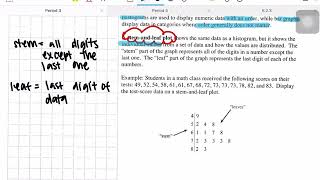 Period 3
Period 5
6.2.3
stem = all digits
except the
last one
leaf = last digit of
data
histograms are used to display numeric data with an order, while bar graphs
display data in categories where order generally does not matter.
A stem-and-leaf plot shows the same data as a histogram, but it shows the
individual values from a set of data and how the values are distributed. The
"stem" part of the graph represents all of the digits in a number except the
last one. The "leaf" part of the graph represents the last digit of each of the
numbers.
Example: Students in a math class received the following scores on their
tests: 49, 52, 54, 58, 61, 61, 67, 68, 72, 73, 73, 73, 78, 82, and 83. Display
the test-score data on a stem-and-leaf plot.
"leaves"
4 9
5 2 4 8
"stem" 6 1 1 7 8
7 2 3 3 3 8
8 2 3